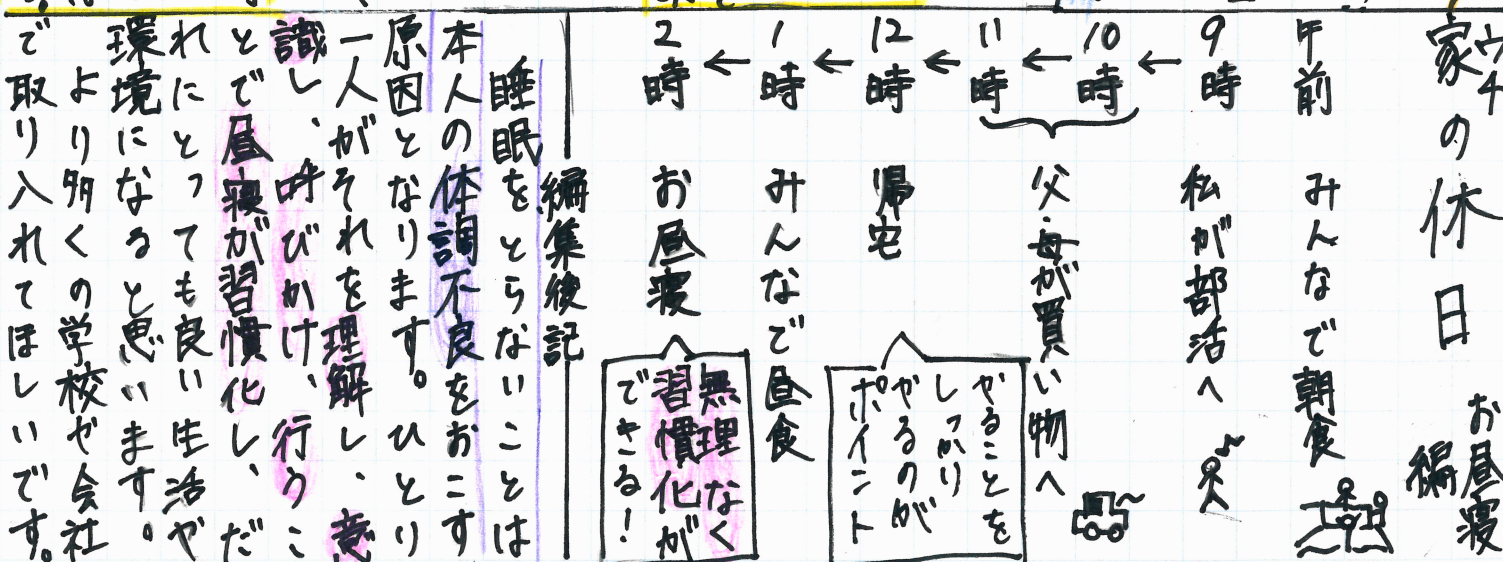 家の休日
ウチ
お昼寝
編
午前
みんなで朝食
9時
私が部活へ
10時
11時
父・母が買い物へ
12時
帰宅
やることを
しっかり
やるのが
ポイント
1時
みんなで昼食
2時
お昼寝
無理なく
習慣化が
できる!
編集後記
睡眠をとらないことは
本人の体調不良をおこす
原因となります。ひとり
一人がそれを理解し、意
識し、呼びかけ、行うこ
とで昼寝が習慣化し、だ
れにとっても良い生活や
環境になると思います。
より多くの学校や会社
で取り入れてほしいです。